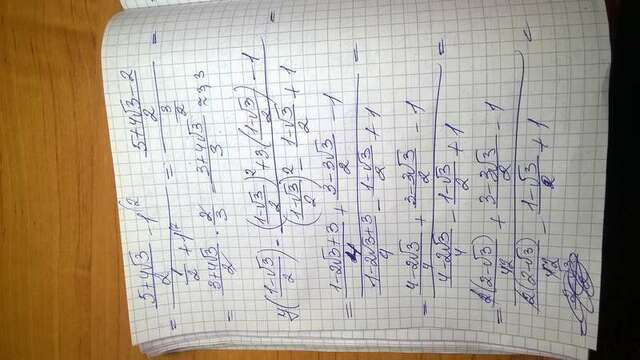 = (5+4√3)/2 - 1^(2 / (1/2 + 1^2) = (5+4√3-2)/2 / 3/2 =
= (3+4√3)/2 · 2/3 = (3+4√3)/3 ≈ 3,3
y((1-√3)/2) = ((1-√3)/2)^2 + 3((1-√3)/2) - 1 / ((1-√3)/2)^2 - (1-√3)/2 + 1 =
= (1-2√3+3)/4 + (3-3√3)/2 - 1 / (1-2√3+3)/4 - (1-√3)/2 + 1 =
= (4-2√3)/4 + (3-3√3)/2 - 1 / (4-2√3)/4 - (1-√3)/2 + 1 =
= 2(2-√3)/4 2 + (3-3√3)/2 - 1 / 2(2-√3)/4 2 - (1-√3)/2 + 1 =